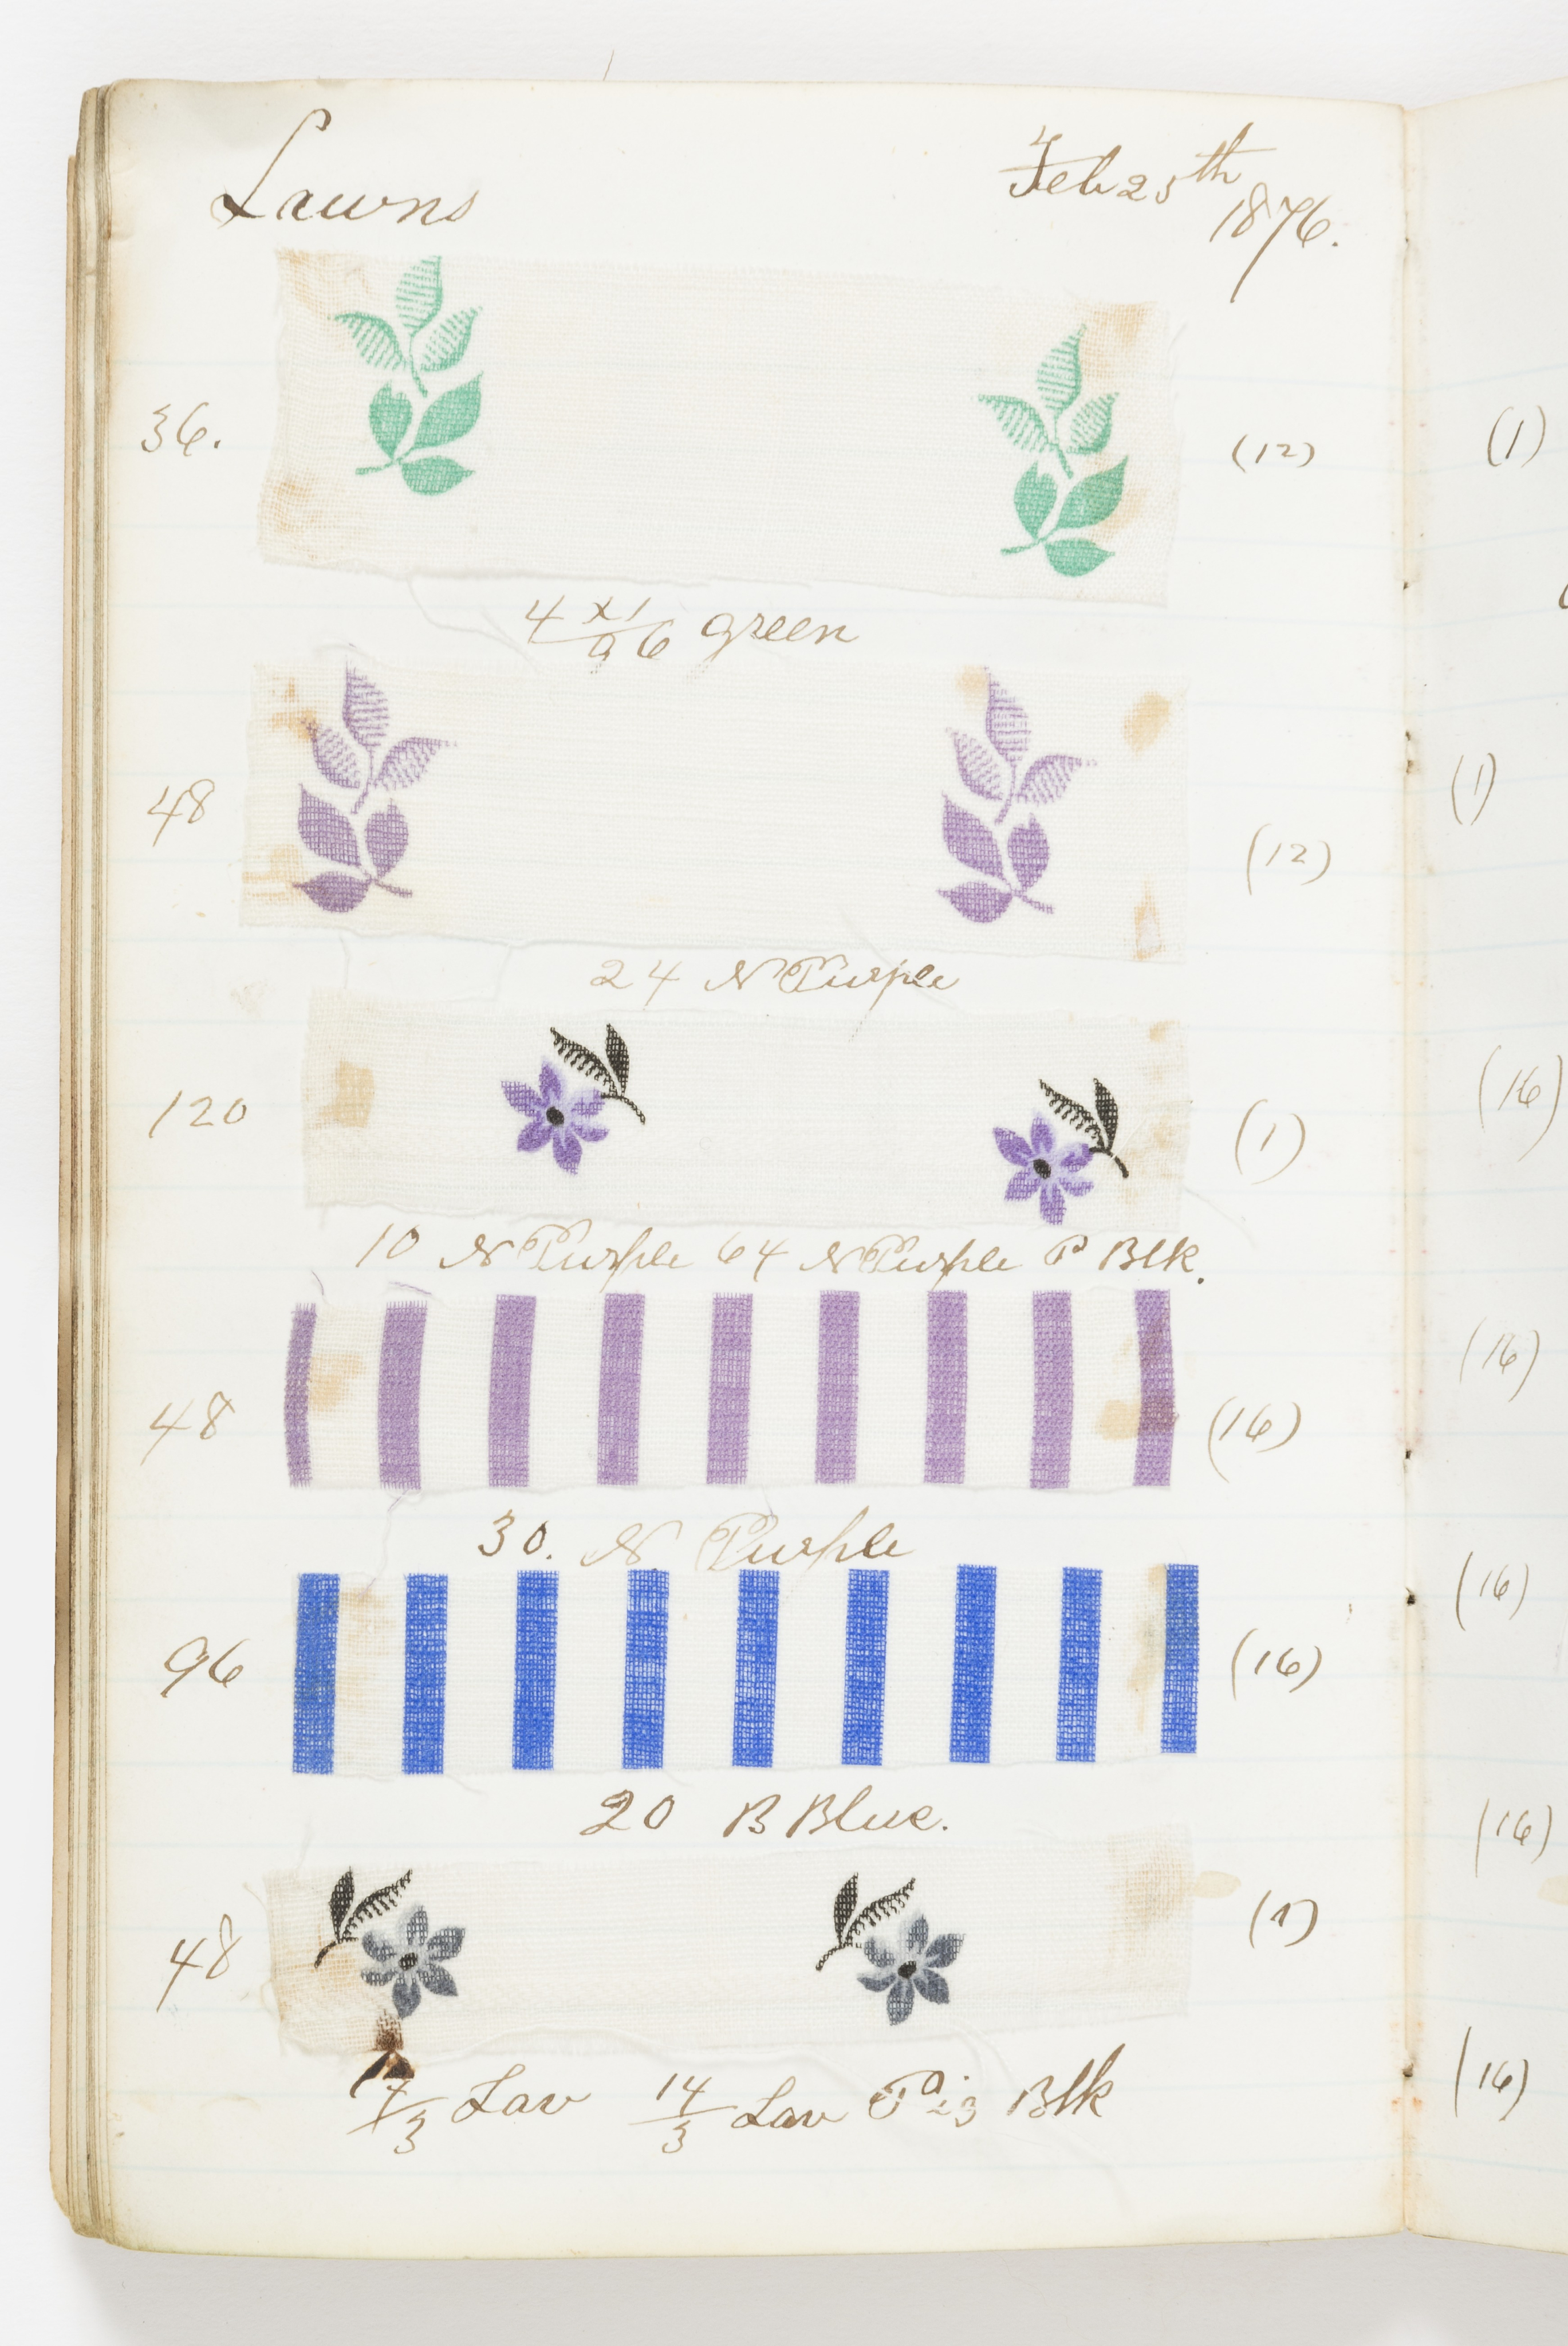 Lawns
Feb 25th
1876.
36.
(12)
(1)
4 x1/96 green
48
(12)
(1)
24 N Purple
120
(1)
(16)
10 N Purple 64 N Purple P Blk.
48
(16)
(16)
30. N Purple
96
(16)
(16)
20 B Blue.
48
(1)
(16)
7/3 Lav 14/3 Lav Pig Blk
(16)